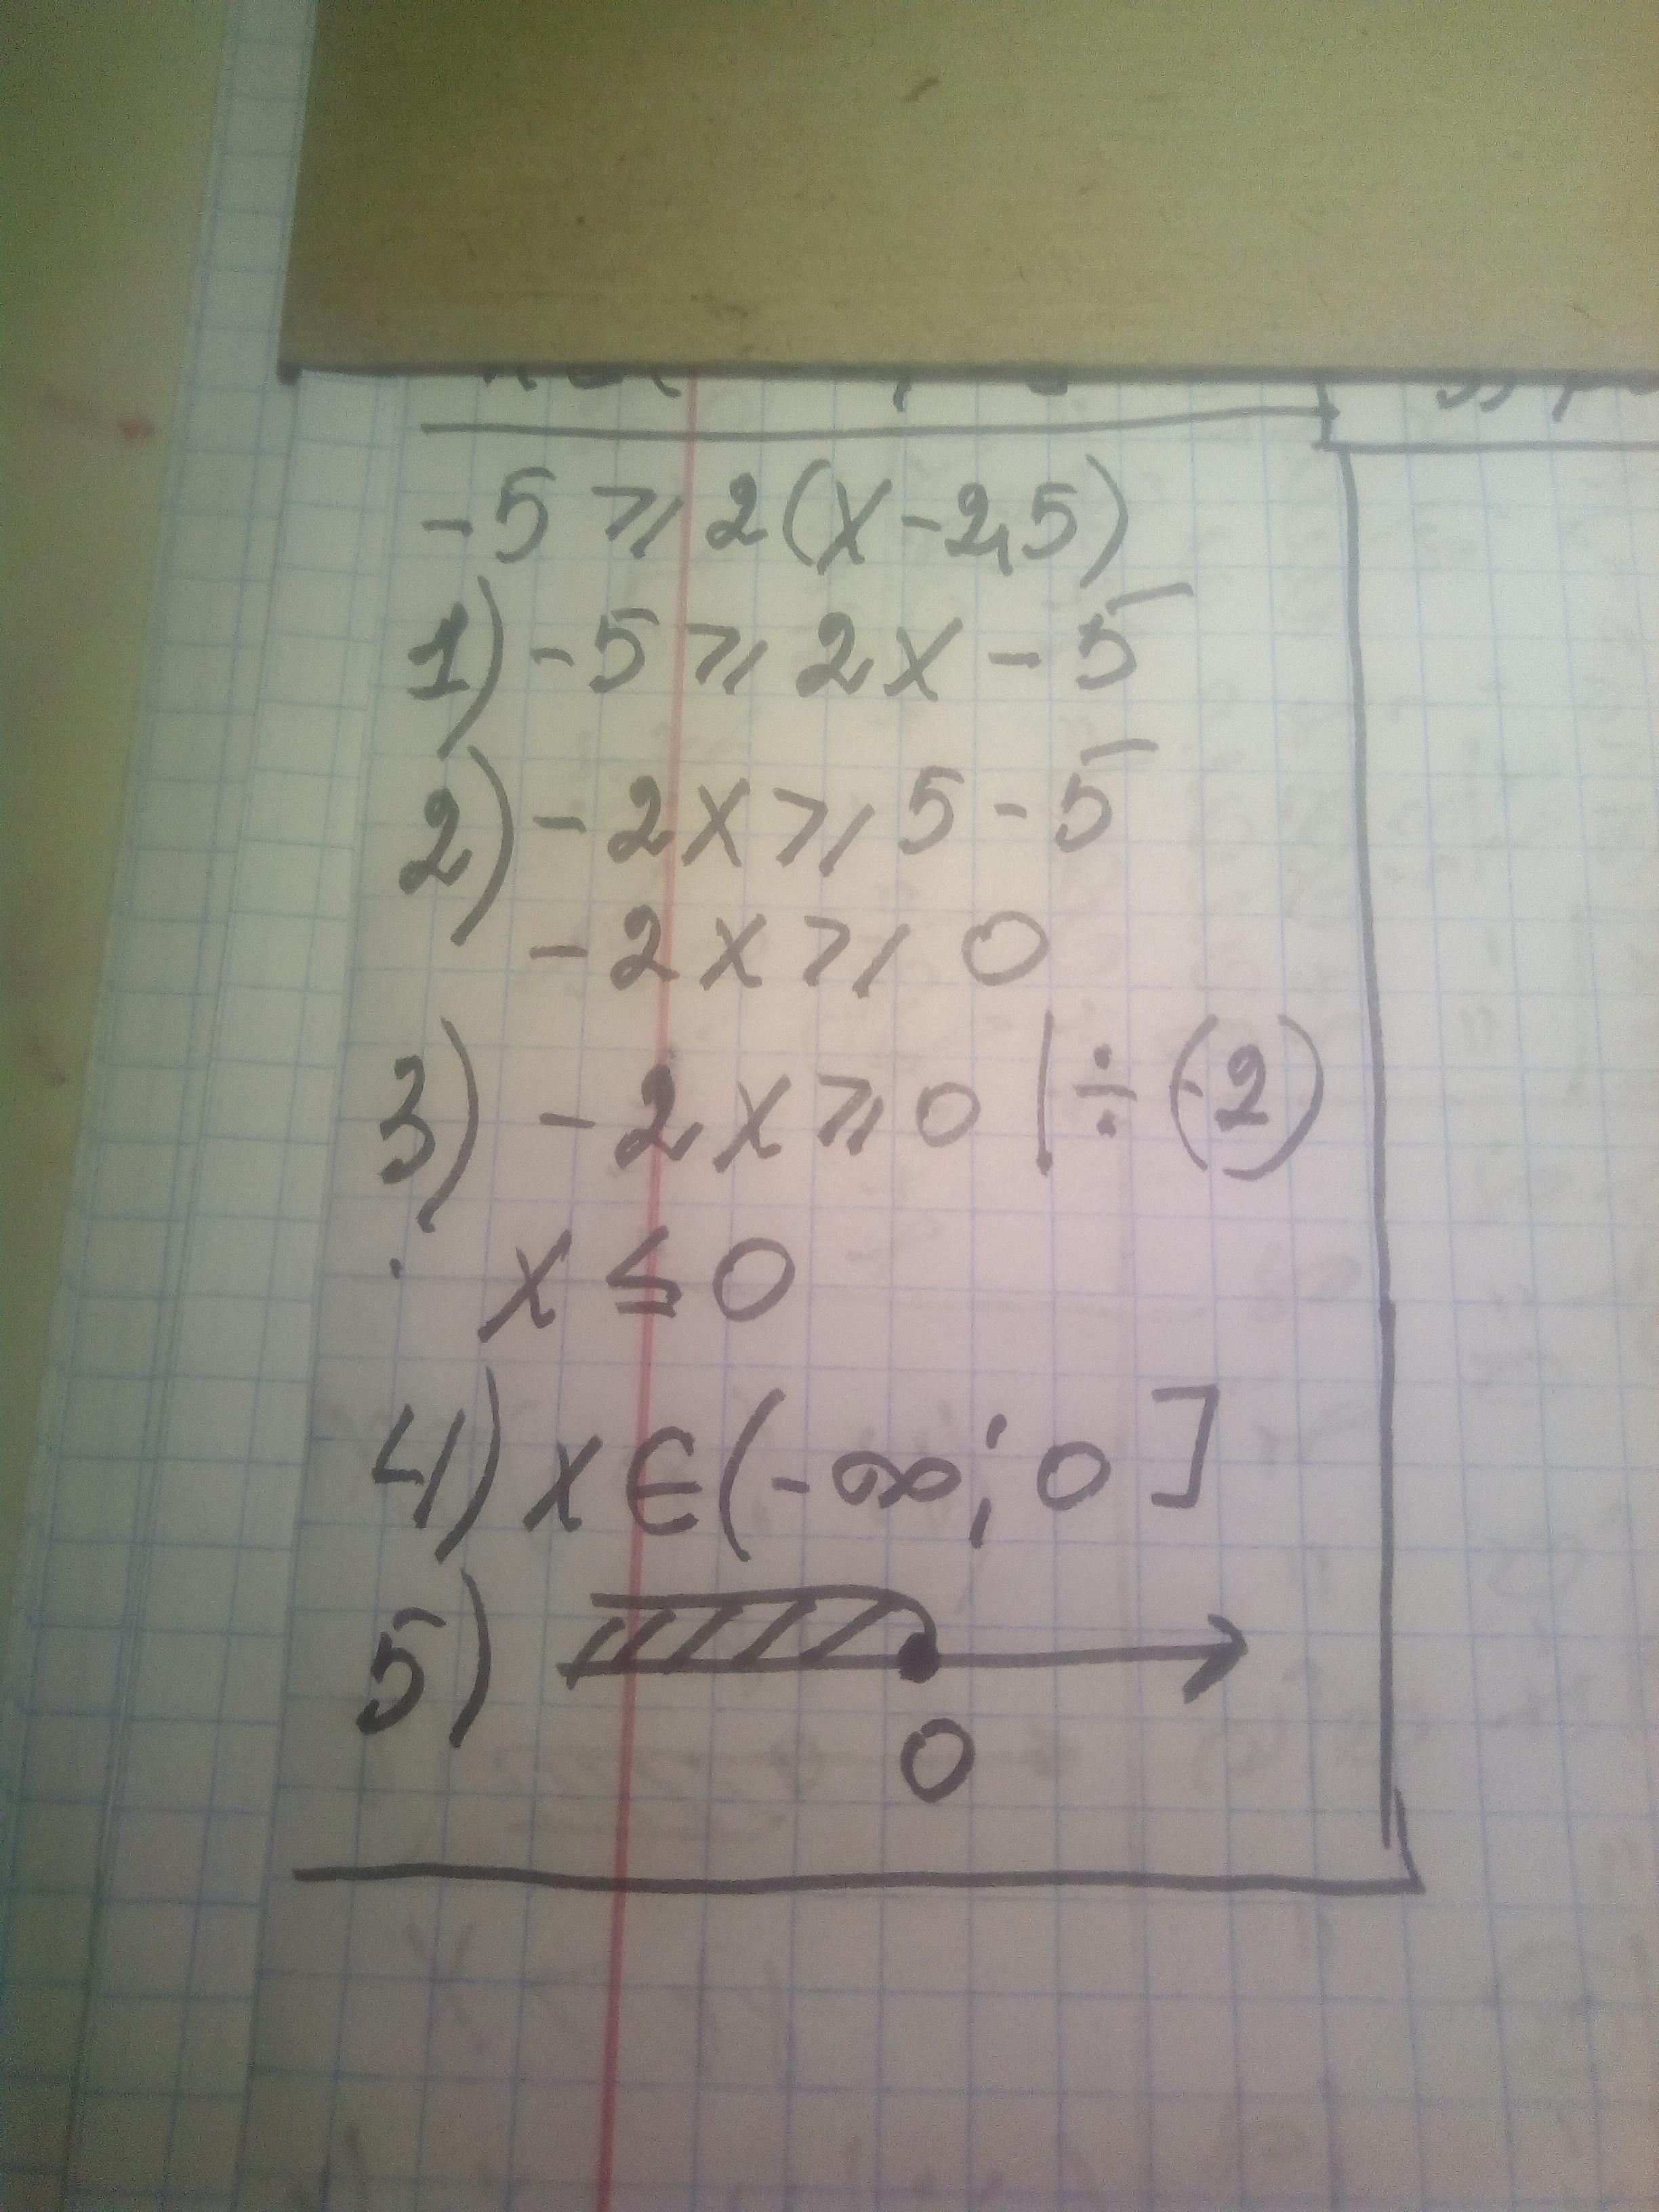 -5 ⩾ 2(x-2,5)
1) -5 ⩾ 2x - 5
2) -2x ⩾ 5 - 5
-2x ⩾ 0
3) -2x ⩾ 0 | ÷ (-2)
x ≤ 0
4) x ∈ (-∞; 0]
5)
0